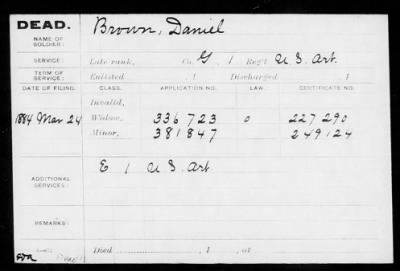 DEAD. Brown, Daniel
NAME OF SOLDIER:
SERVICE: Late rank, Co. G, 1 Reg't U.S. Art.
TERM OF SERVICE: Enlisted , 1 Discharged , 1
DATE OF FILING. CLASS. APPLICATION NO. LAW. CERTIFICATE NO.
Invalid,
1884 Mar 24 Widow, 336723 0 227290
Minor, 381847 249124
ADDITIONAL SERVICES: E 1 U.S. Art
REMARKS:
Died , 1 , at